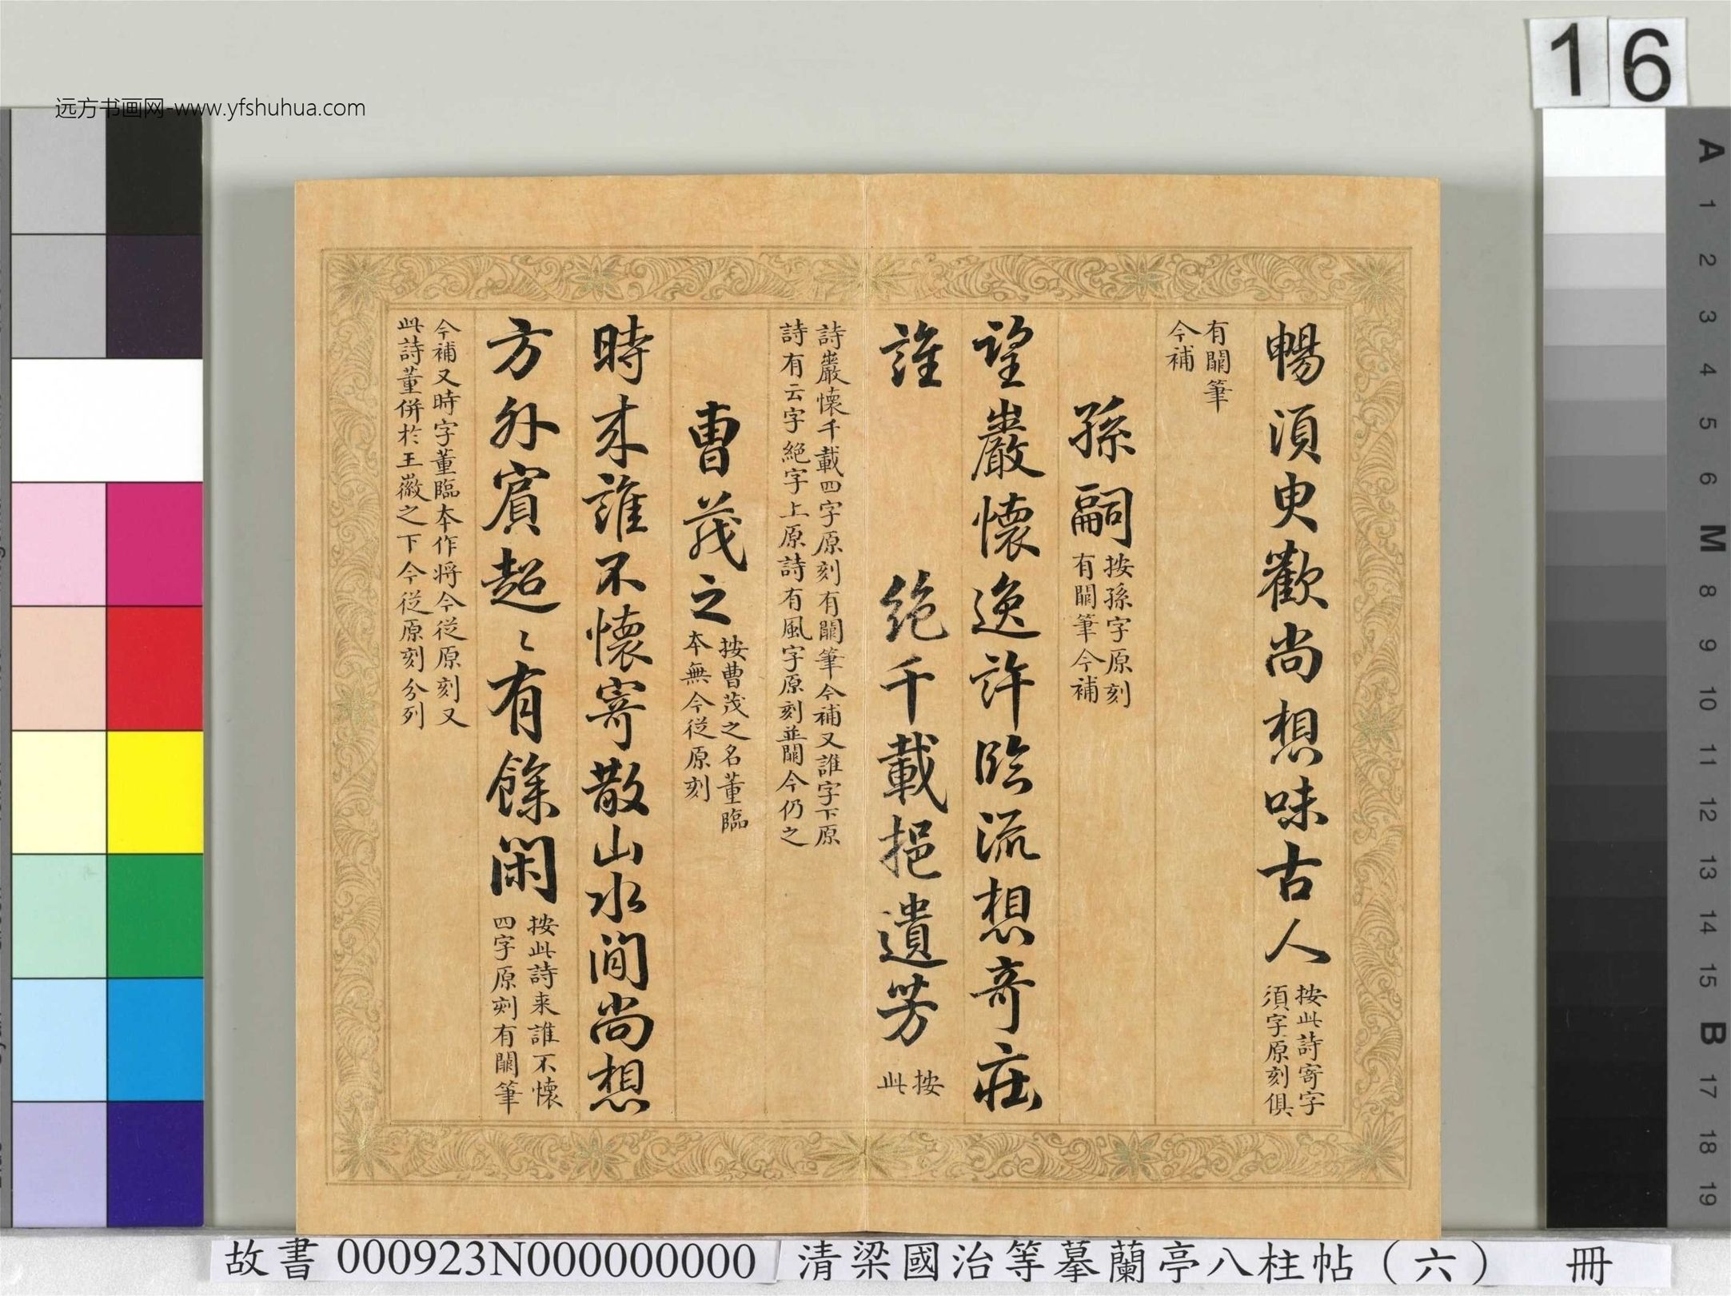 远方书画网-www.yfshuhua.com
16
暢須臾歡尚想味古人
按此詩寄字
須字原刻俱
有闕筆
今補
孫嗣
按孫字原刻
有闕筆今補
望巖懷逸許臨流想奇莊
誰 絶千載挹遺芳
按
此
詩巖懷千載四字原刻有闕筆今補又誰字下原
詩有云字絕字上原詩有風字原刻並闕今仍之
曹茂之
按曹茂之名董臨
本無今從原刻
時来誰不懷寄散山水間尚想
方外賓超〻有餘閑
按此詩来誰不懷
四字原刻有闕筆
今補又時字董臨本作将今從原刻又
此詩董併於王徽之下今從原刻分列
A
1
2
3
4
5
6
M
8
9
10
11
12
13
14
15
B
17
18
19
故書 000923N000000000 清梁國治等摹蘭亭八柱帖（六） 冊